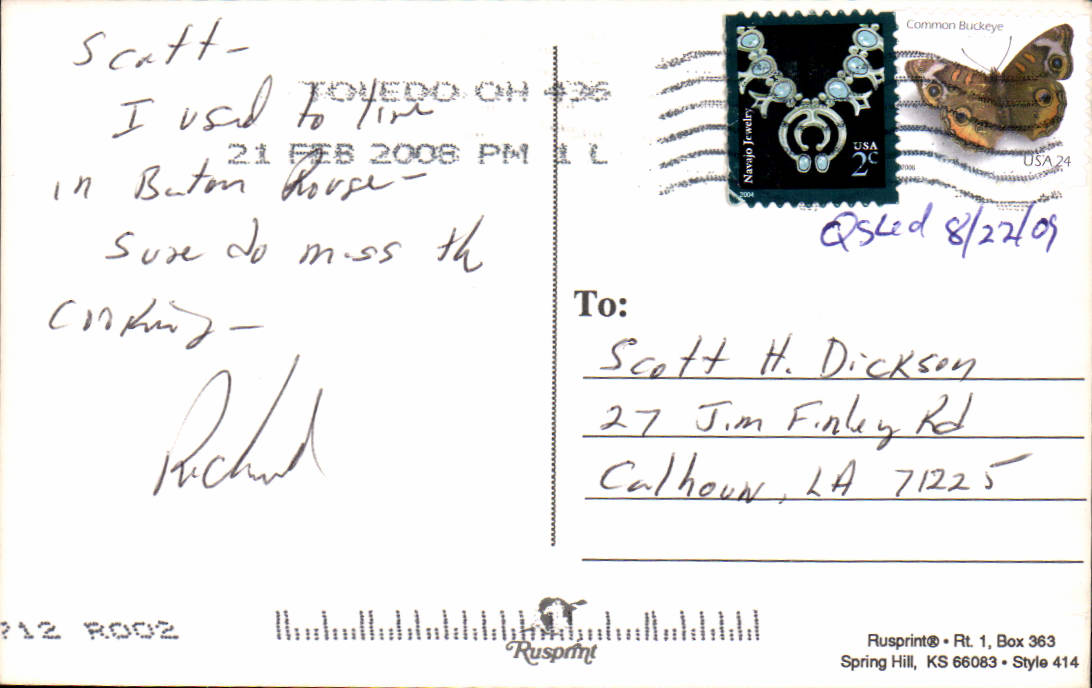 Scott –
I used to live
in Baton Rouge –
sure do miss the
cooking –
Richard
TOLEDO OH 436
21 FEB 2008 PM 1 L
Navajo Jewelry
USA
2c
2004
Common Buckeye
USA 24
2006
QSLed 8/22/09
To:
Scott H. Dickson
27 Jim Finley Rd
Calhoun, LA 71225
712 R002
Rusprint
Rusprint® • Rt. 1, Box 363
Spring Hill, KS 66083 • Style 414